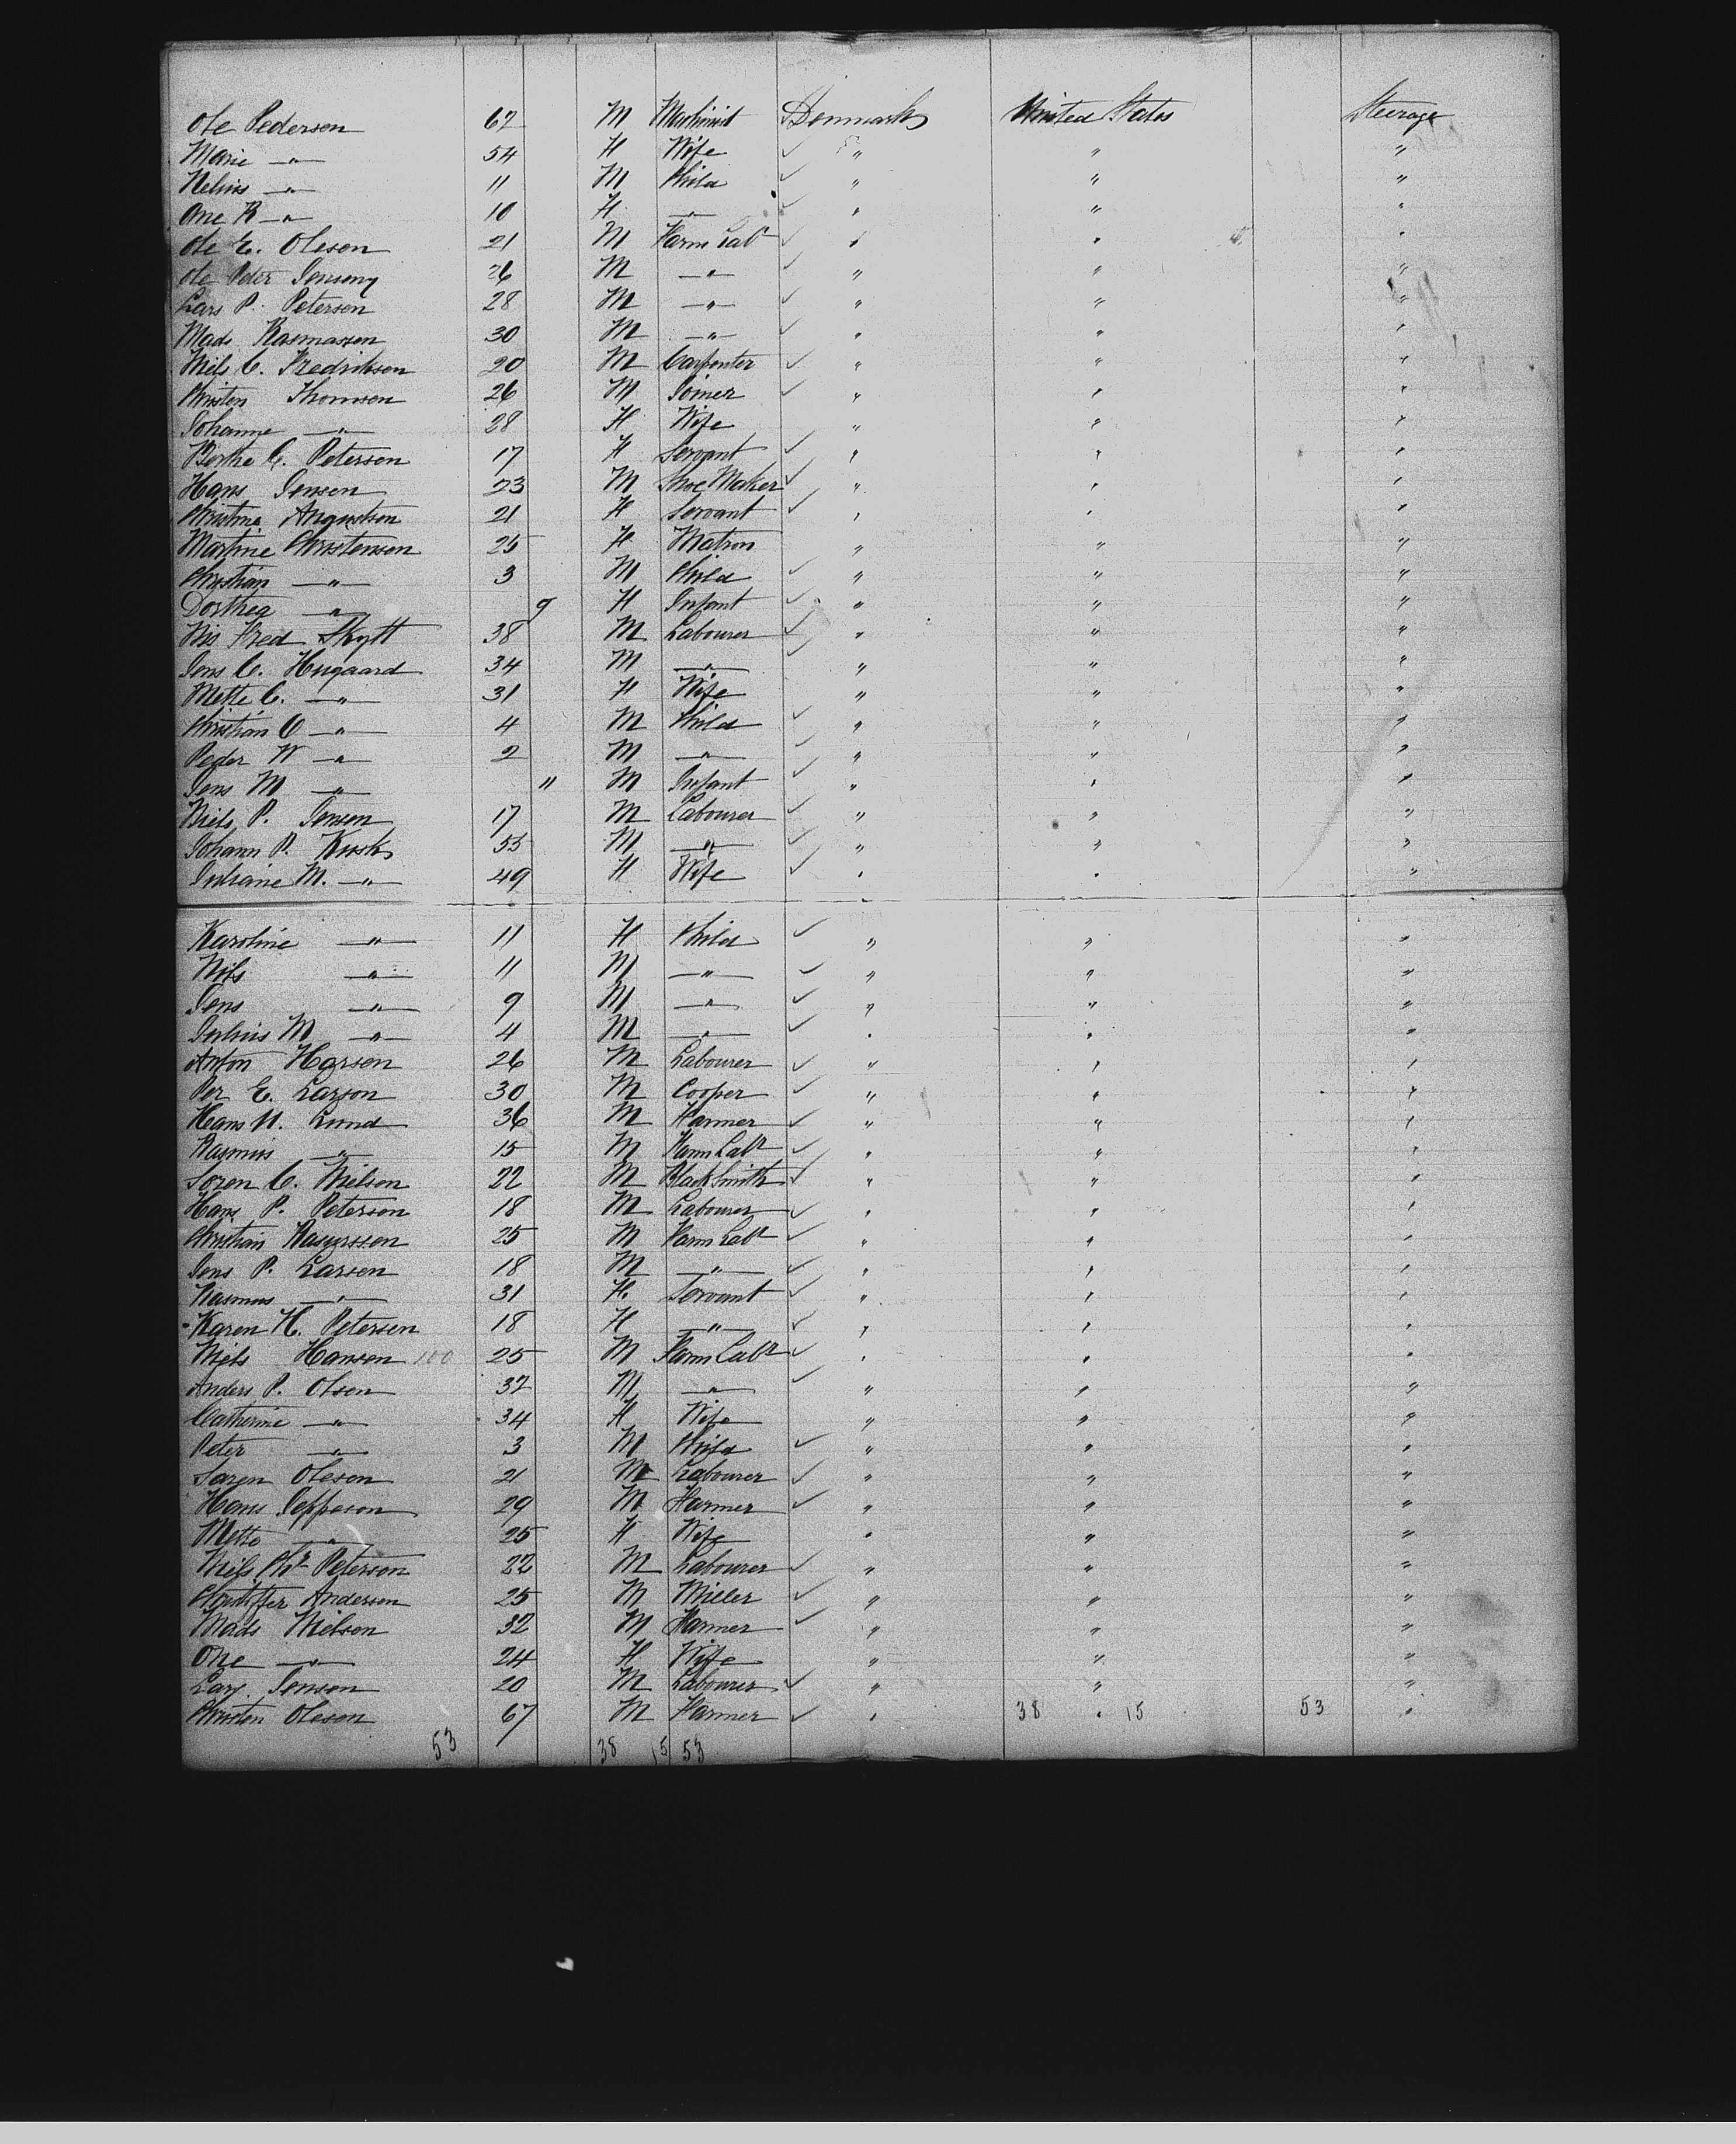 Ole Pedersen 62 M Machinist Denmark United States Steerage
Marie —"— 54 F Wife ✓ " " "
—"— 11 M Child ✓ " " "
Ane K —"— 10 F —"— ✓ " " "
Ole E. Oleson 21 M Farm Labr ✓ " " "
Ole Peter 26 M —"— ✓ " " "
Lars P. Peterson 28 M —"— ✓ " " "
Mads Rasmassen 30 M —"— ✓ " " "
Niels C. Fredriksen 20 M Carpenter ✓ " " "
Christen Thomsen 26 M Joiner ✓ " " "
Johanne —"— 28 F Wife " " "
Berthe C. Peterson 17 F Servant ✓ " " "
Hans Jensen 23 M Shoe Maker ✓ " " "
Christine 21 F Servant ✓ " " "
Martine Christensen 25 F Matron " " "
Christian —"— 3 M Child ✓ " " "
Dorthea —"— 9 F Infant ✓ " " "
Nis Fred Skytt 38 M Labourer ✓ " " "
Jens C. Hugaard 34 M —"— ✓ " " "
Mette C. —"— 31 F Wife " " "
Christian C —"— 4 M Child ✓ " " "
Peder N —"— 2 M —"— ✓ " " "
Jens M —"— " M Infant ✓ " " "
Niels P. Jensen 17 M Labourer ✓ " " "
Johann P. Kusk 55 M —"— ✓ " " "
Juliane M. —"— 49 F Wife ✓ " " "
Karoline —"— 11 F Child ✓ " " "
Nils —"— 11 M —"— ✓ " " "
Jens —"— 9 M —"— ✓ " " "
Julius M —"— 4 M —"— ✓ " " "
Anton Hansen 26 M Labourer ✓ " " "
Per E. Larson 30 M Cooper ✓ " " "
Hans N. Lund 36 M Farmer ✓ " " "
Rasmus —"— 15 M Farm Labr ✓ " " "
Soren C. Nielsen 22 M Blacksmith ✓ " " "
Hans P. Peterson 18 M Labourer ✓ " " "
Christian 25 M Farm Labr ✓ " " "
Jens P. Larsen 18 M —"— ✓ " " "
Rasmus —"— 31 F. Servant ✓ " " "
Karen H. Petersen 18 F —"— ✓ " " "
Niels Hansen 100 25 M Farm Labr ✓ " " "
Anders P. Olsen 32 M —"— ✓ " " "
Catherine —"— 34 F Wife " " "
Peter —"— 3 M Child ✓ " " "
Soren Oleson 21 M Labourer ✓ " " "
Hans Jeppeson 29 M Farmer ✓ " " "
Mette —"— 25 F Wife " " "
Niels Chr Peterson 22 M Labourer ✓ " " "
Andersen 25 M Miller ✓ " " "
Mads Nielsen 32 M Farmer ✓ " " "
Ane —"— 24 F Wife " " "
Lars Jensen 20 M Labourer ✓ " " "
Christen Oleson 67 M Farmer ✓ " 38 " 15 53 "
53 38 15 53